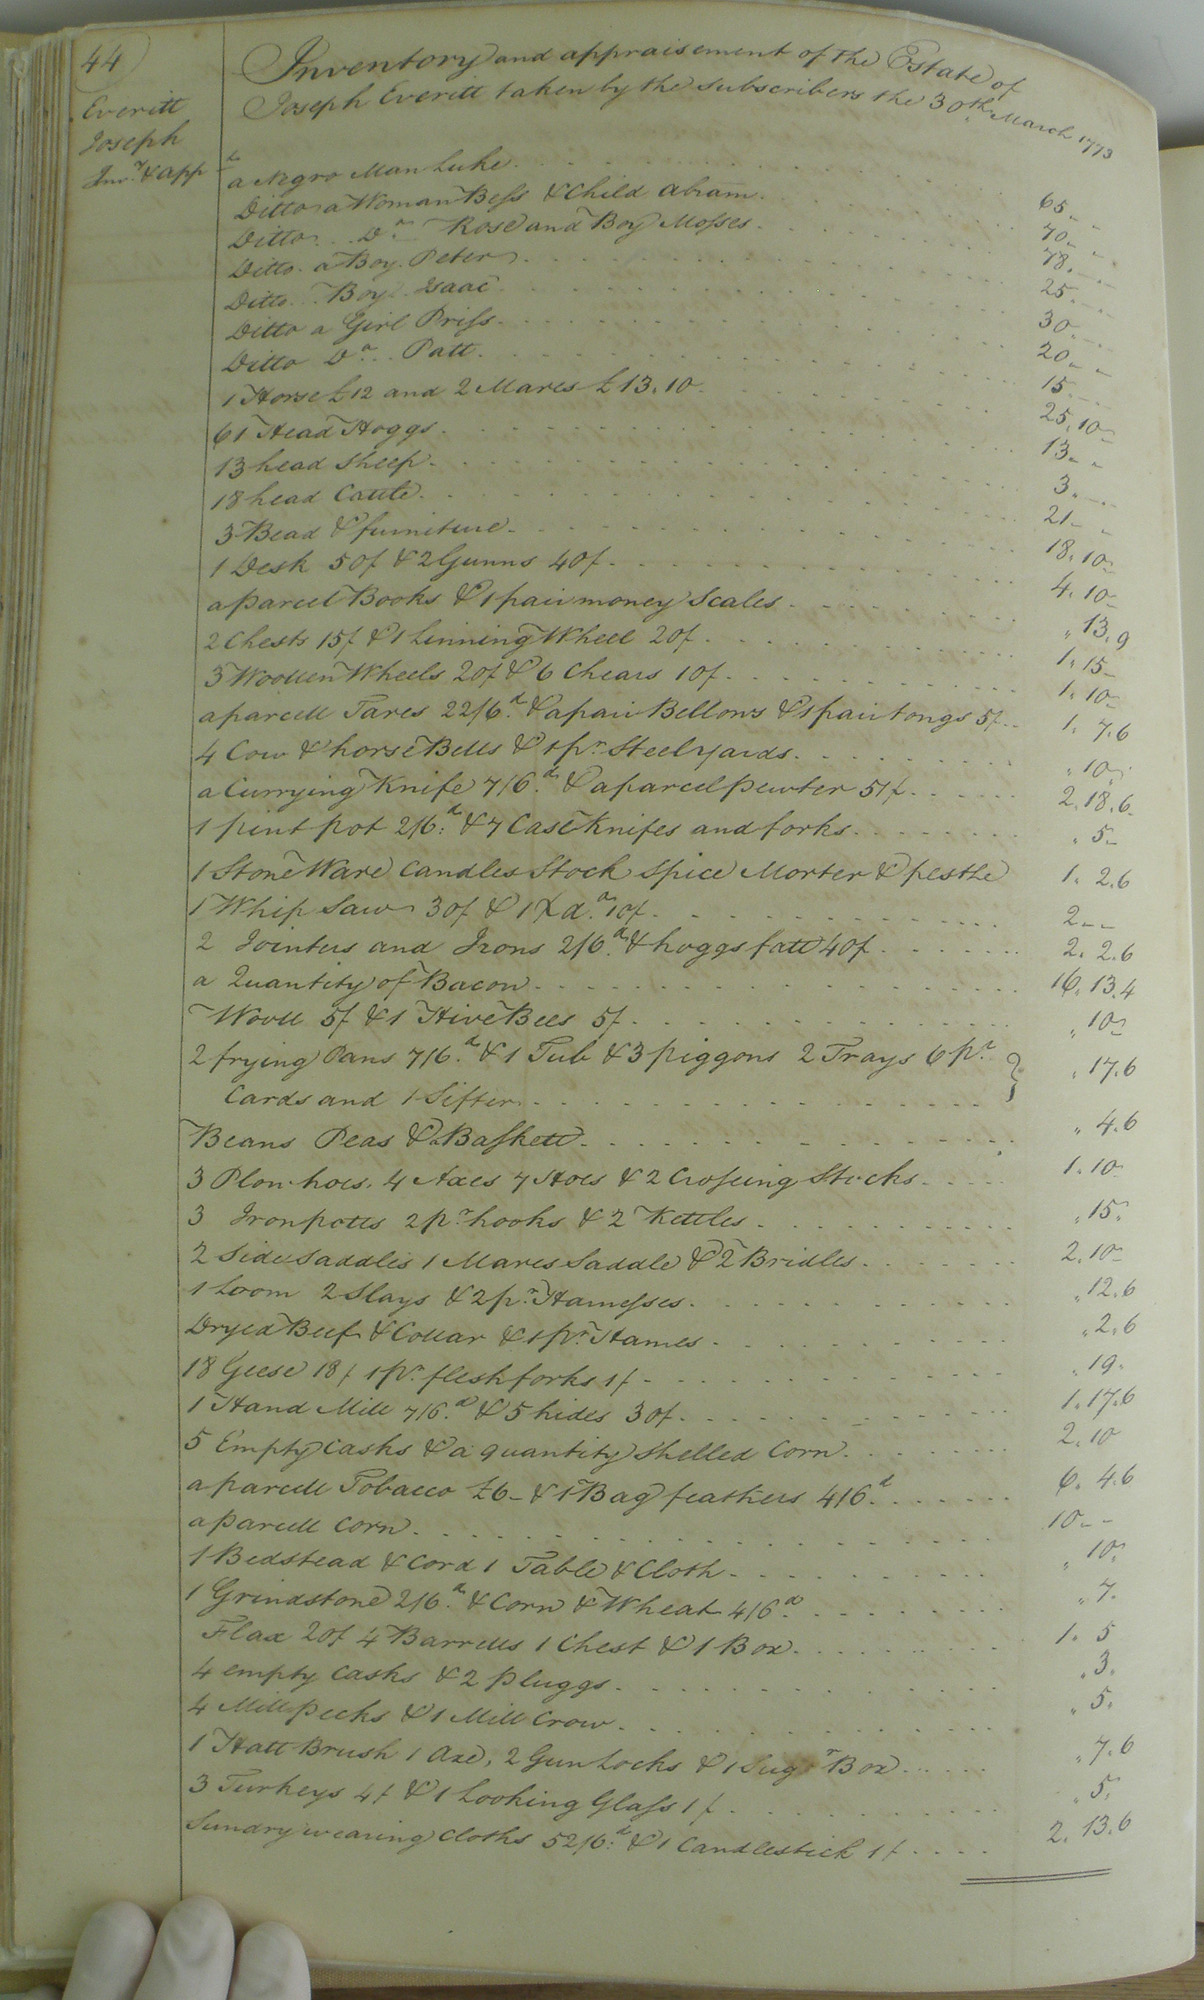 44
Everitt
Joseph
Inv.y & App.t
Inventory and appraisement of the Estate of
Joseph Everitt taken by the subscribers the 30th March 1773
a Negro Man Luke 65. " "
Ditto a Woman Bess & Child Abram 70. " "
Ditto Do Rose and Boy Mosses 78. " "
Ditto a Boy Peter 25. " "
Ditto Boy Isaac 30. " "
Ditto a Girl Priss 20. " "
Ditto Do Patt 15. " "
1 Horse £12 and 2 Mares £13.10 25.10 "
61 Head Hoggs 13. " "
13 head Sheep 3. " "
18 head Cattle 21. " "
3 Bead & furniture 18.10 "
1 Desk 50/ & 2 Gunns 40/ 4.10 "
a parcel Books & 1 pair money Scales " 13.9
2 Chests 15/ & 1 Linning Wheel 20/ 1.15 "
3 Woollen Wheels 20/ & 6 Chears 10/ 1.10 "
a parcell Tares 22/6d & a pair Bellows & 1 pair tongs 5/ 1.7.6
4 Cow & horse Bells & 1 pr Steelyards " 10 "
a Currying Knife 7/6d & a parcel pewter 51/ 2.18.6
1 pint pot 2/6d & 7 Case Knifes and forks " 5 "
1 Stone Ware Candles Stock Spice Morter & pestle 1.2.6
1 Whip Saw 30/ & 1 X do 10/ 2. " "
2 Jointers and Irons 2/6d & hoggs fatt 40/ 2.2.6
a Quantity of Bacon 16.13.4
Wooll 5/ & 1 Hive Bees 5/ " 10 "
2 frying Pans 7/6d & 1 Tub & 3 piggons 2 Trays 6 pr
Cards and 1 Sifter " 17.6
Beans Peas & Baskett " 4.6
3 Plow hoes 4 Axes 7 Hoes & 2 Crossing Stocks 1.10
3 Iron potts 2 pr hooks & 2 Kettles " 15 "
2 Side Saddles 1 Mares Saddle & 2 Bridles 2.10 "
1 Loom 2 Slays & 2 pr Harnesses " 12.6
Dryed Beef & Collar & 1 pr Hames " 2.6
18 Geese 18/ 1 pr flesh forks 1/ " 19 "
1 Hand Mill 7/6d & 5 hides 30/ 1.17.6
5 Empty Casks & a quantity Shelled Corn 2.10
a parcell Tobacco £6 & 1 Bag feathers 4/6d 6.4.6
a parcell Corn 10. " "
1 Bedstead & Cord 1 Table & Cloth " 10 "
1 Grindstone 2/6d & Corn & Wheat 4/6d " 7 "
Flax 20/ 4 Barrells 1 Chest & 1 Box 1.5
4 empty Casks & 2 pluggs " 3 "
4 Mill pecks & 1 Mill Crow " 5 "
1 Hatt Brush 1 Axe, 2 Gun Locks & 1 Sugr Box " 7.6
3 Turkeys 4/ & 1 Looking Glass 1/ " 5 "
Sundry wearing Cloths 52/6d & 1 Candlestick 1/ 2.13.6